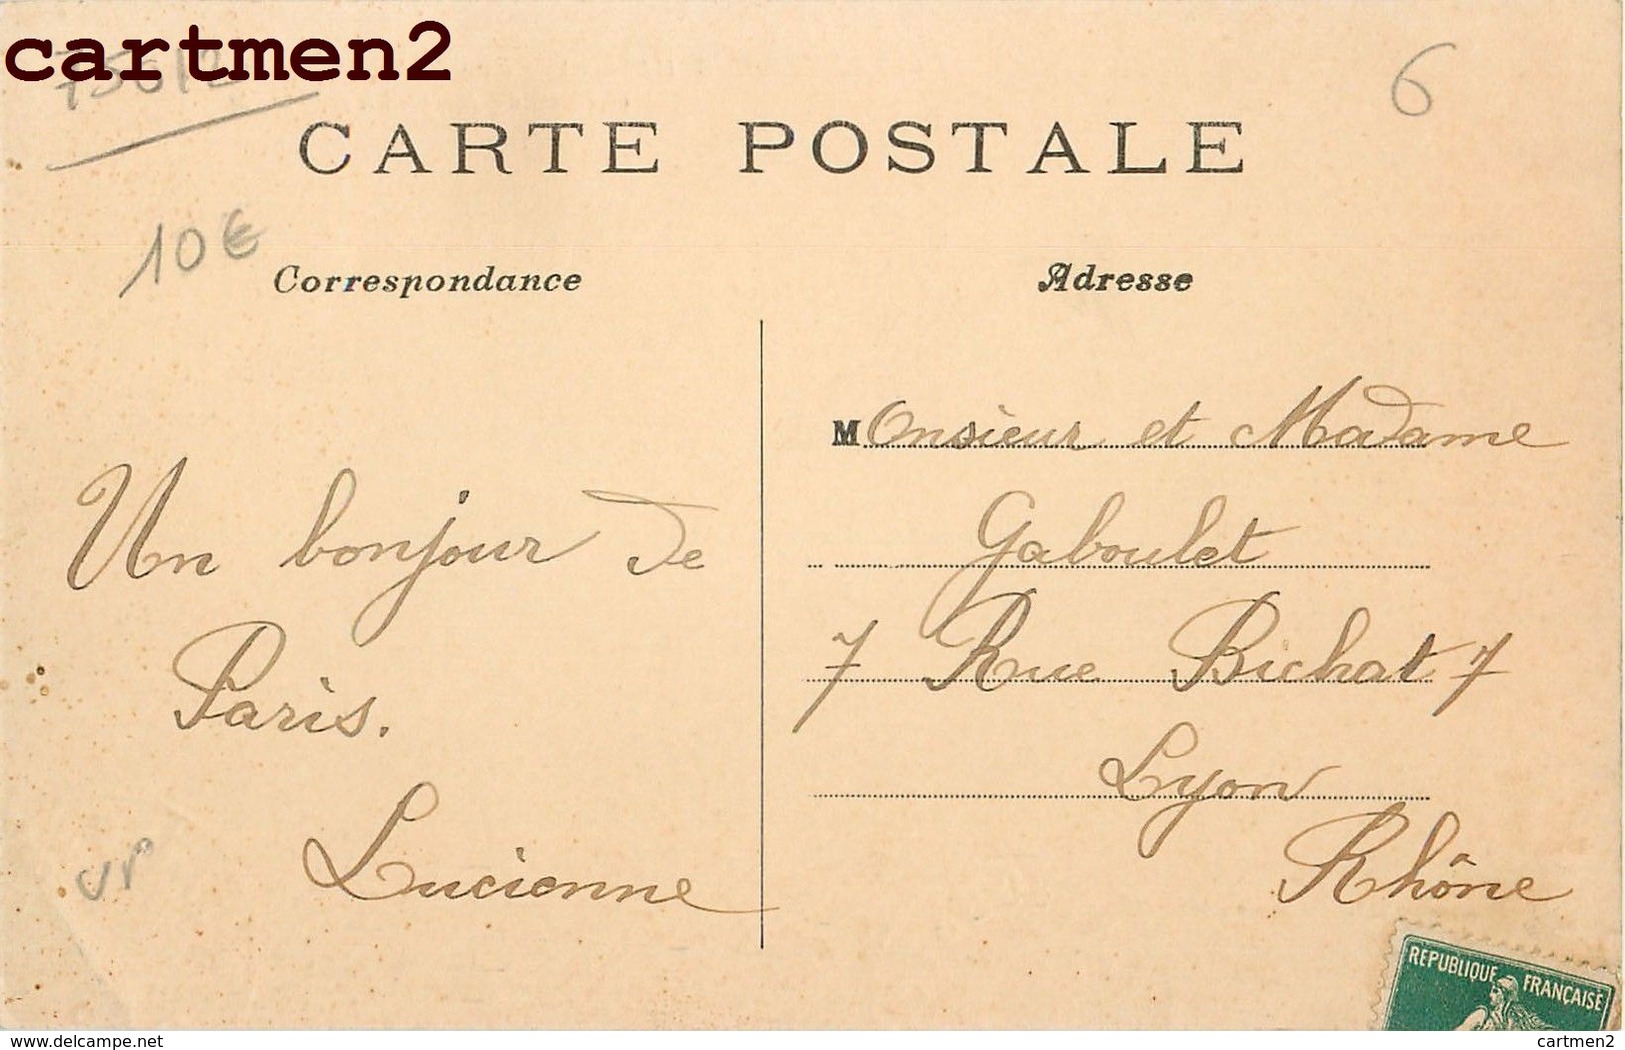 cartmen2
6
CARTE POSTALE
10€
Correspondance
Adresse
Monsieur et Madame
Gaboulet
7 Rue Bichat 7
Lyon
Rhône
Un bonjour de
Paris.
Lucienne
REPUBLIQUE FRANÇAISE
www.delcampe.net
cartmen2